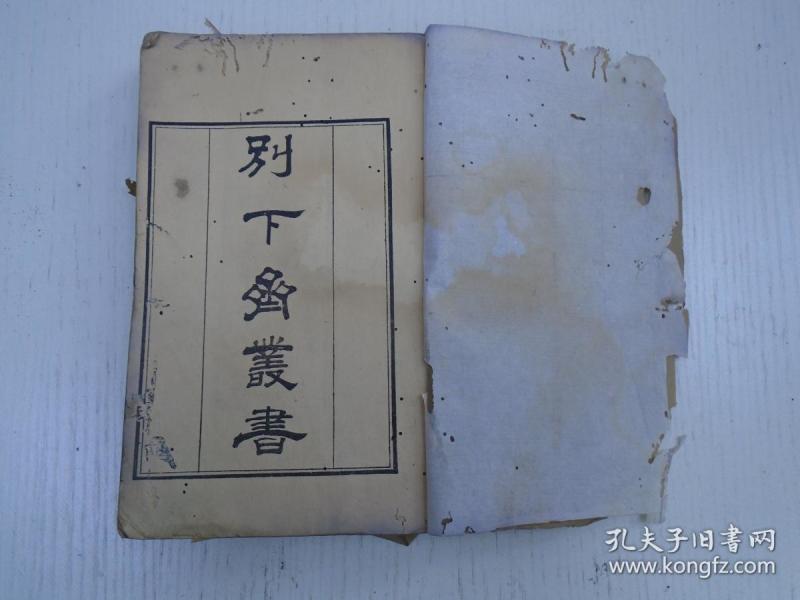 別下齋叢書
孔夫子旧书网
www.kongfz.com